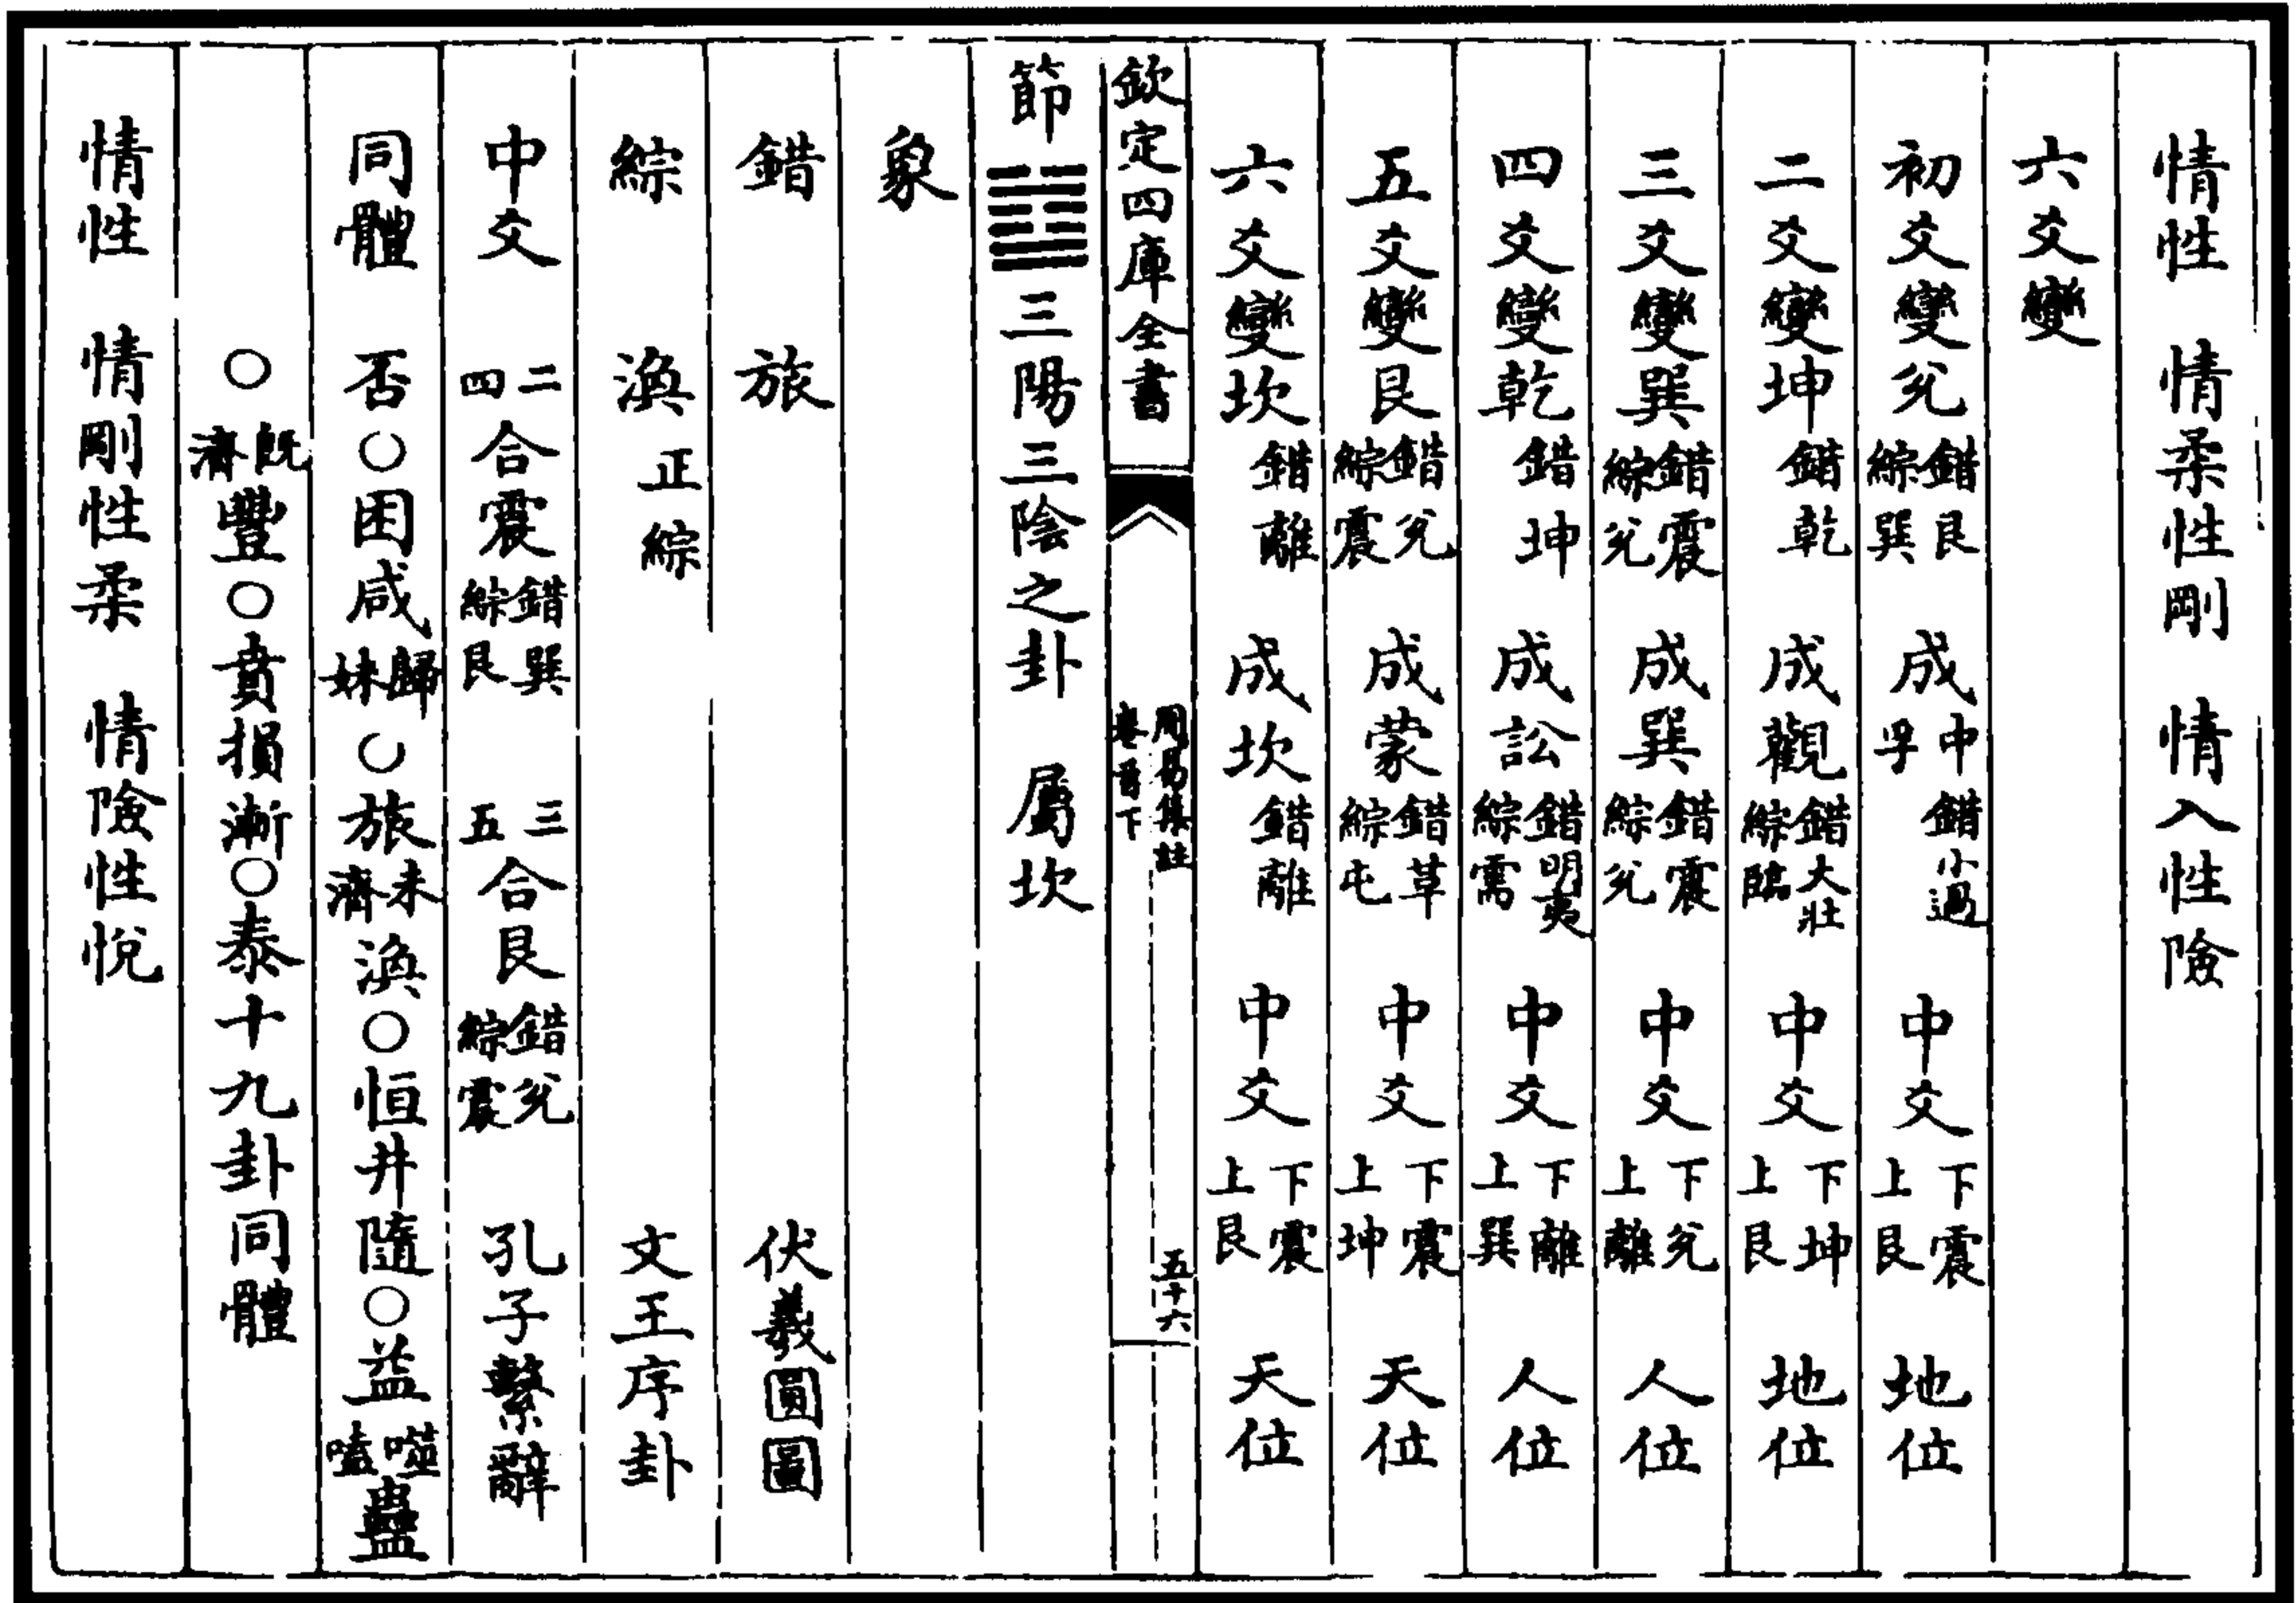 情性　情柔性剛　情入性險
六爻變
初爻變兌錯艮綜巽　成中孚錯小過　中爻下震上艮　地位
二爻變坤錯乾　成觀錯大壯綜臨　中爻下坤上艮　地位
三爻變巽錯震綜兌　成巽錯震綜兌　中爻下兌上離　人位
四爻變乾錯坤　成訟錯明夷綜需　中爻下離上巽　人位
五爻變艮錯兌綜震　成蒙錯革綜屯　中爻下震上坤　天位
六爻變坎錯離　成坎錯離　中爻下震上艮　天位
欽定四庫全書　周易集註卷首下　五十六
節䷻三陽三陰之卦　屬坎
象
錯　旅　伏羲圓圖
綜　渙正綜　文王序卦
中爻　二四合震錯巽綜艮　三五合艮錯兌綜震　孔子繫辭
同體　否○困咸歸妹○旅未濟渙○恒井隨○益噬嗑蠱
○既濟豐○賁損漸○泰十九卦同體
情性　情剛性柔　情險性悅